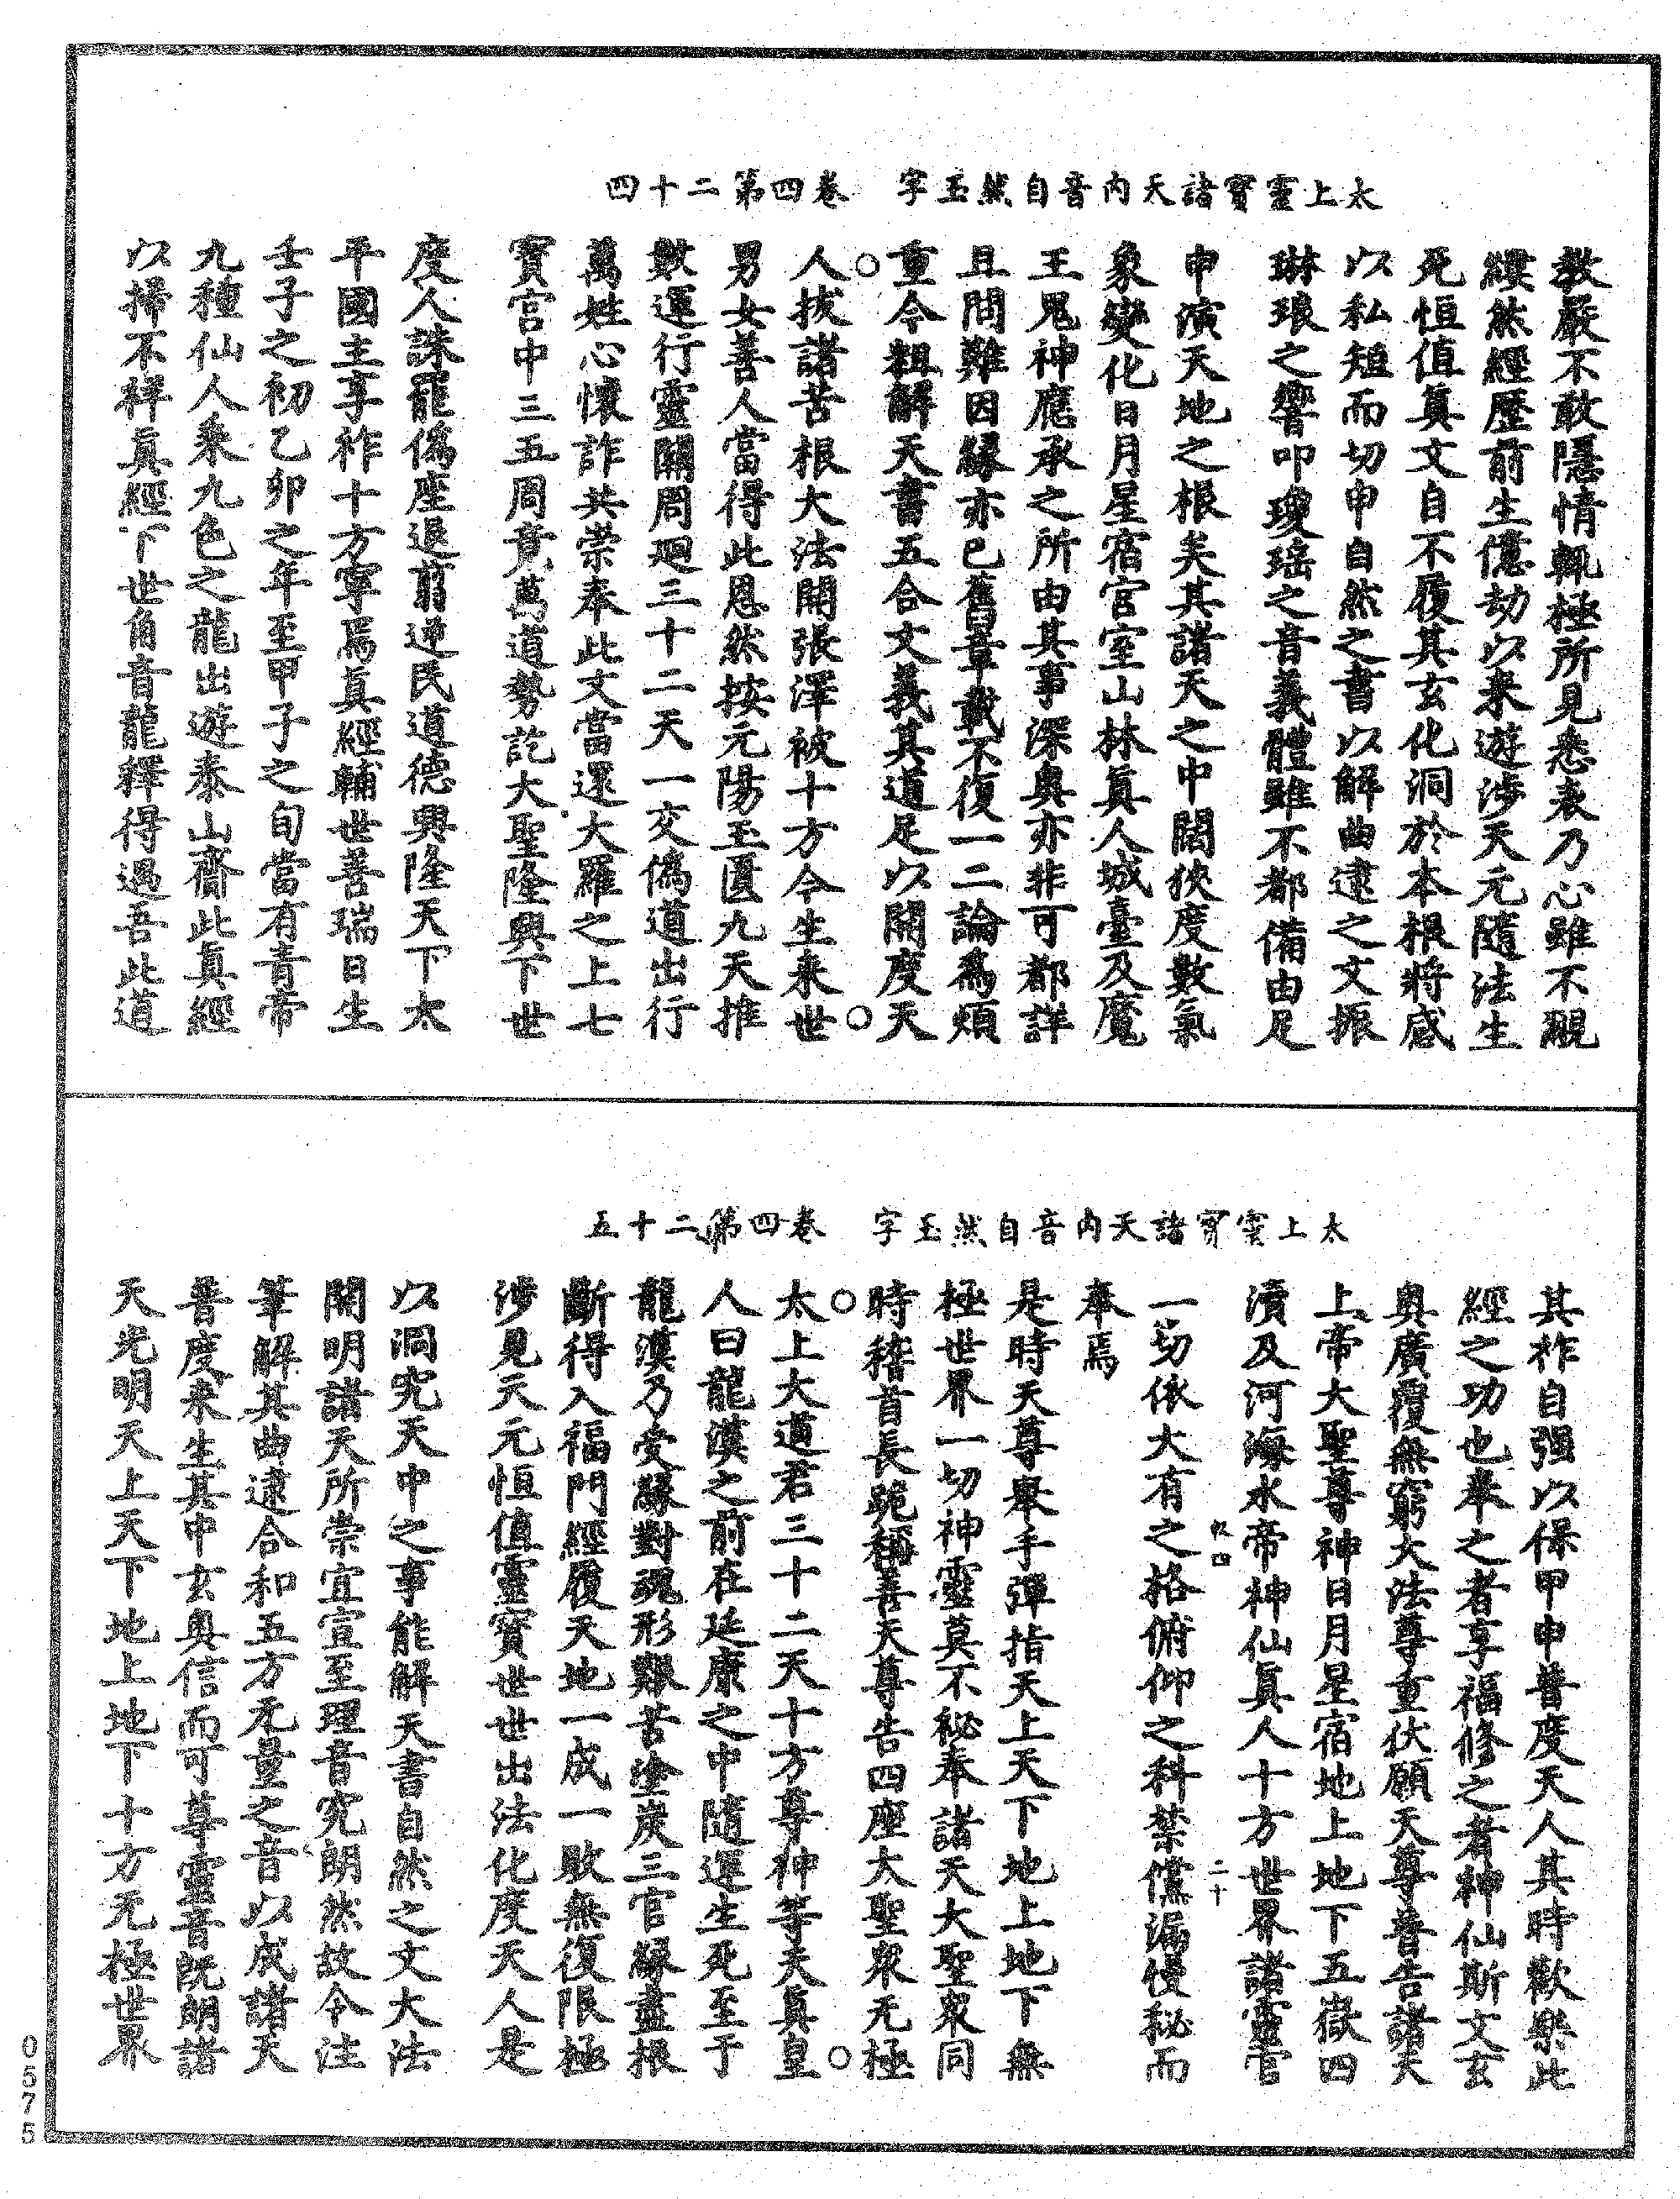 太上靈寶諸天內音自然玉字　卷四第二十四
教嚴不敢隱情輒極所見悉表乃心雖不覼
縷然經歷前生億劫以來遊涉天元隨法生
死恒值真文自不履其玄化洞於本根將感
以私短而切申自然之書以解曲逮之文振
琳琅之響叩瓊瑤之音義體雖不都備由足
申演天地之根矣其諸天之中闊狹度數氣
象變化日月星宿官室山林真人城臺及魔
王鬼神應承之所由其事深奧亦非可都詳
且問難因緣亦已舊章載不復一二論爲煩
重今粗解天書五合文義其道足以開度天
人拔諸苦根大法開張澤被十方今生来世
男女善人當得此恩然按元陽玉匱九天推
數運行靈關周迴三十二天一交僞道出行
萬姓心懷詐共崇奉此文當還大羅之上七
寶宮中三五周竟萬道勢訖大聖隆興下世
度人誅罷僞座退翦逆民道德興隆天下太
平國主享祚十方寧焉真經輔世善瑞日生
壬子之初乙卯之年至甲子之旬當有青帝
九種仙人乘九色之龍出遊泰山齎此真經
以掃不祥真經下世角音龍釋得遇吾此道
太上靈寶諸天內音自然玉字　卷四第二十五
其祚自强以保甲申普度天人其時歡樂此
經之功也奉之者享福修之者神仙斯文玄
奧廣覆無窮大法尊重伏願天尊普告諸天
上帝大聖尊神日月星宿地上地下五嶽四
瀆及河海水帝神仙真人十方世界諸靈官
一切依大有之格俯仰之科禁儻漏慢秘而
奉焉
是時天尊舉手彈指天上天下地上地下無
極世界一切神靈莫不祕奉諸天大聖衆同
時稽首長跪稱善天尊告四座大聖衆无極
太上大道君三十二天十方尊神等夫真皇
人曰龍漢之前在延康之中隨運生死至于
龍漢乃受緣對魂形艱苦塗炭三官緣盡根
斷得入福門經履天地一成一敗無復限極
涉見天元恒值靈寶世世出法化度天人是
以洞究天中之事能解天書自然之文大法
開明諸天所崇宜宣至理音究朗然故令注
筆解其曲逮合和五方无量之音以成諸天
普度来生其中玄奧信而可尊靈音旣朗諸
天光明天上天下地上地下十方无極世界
0575